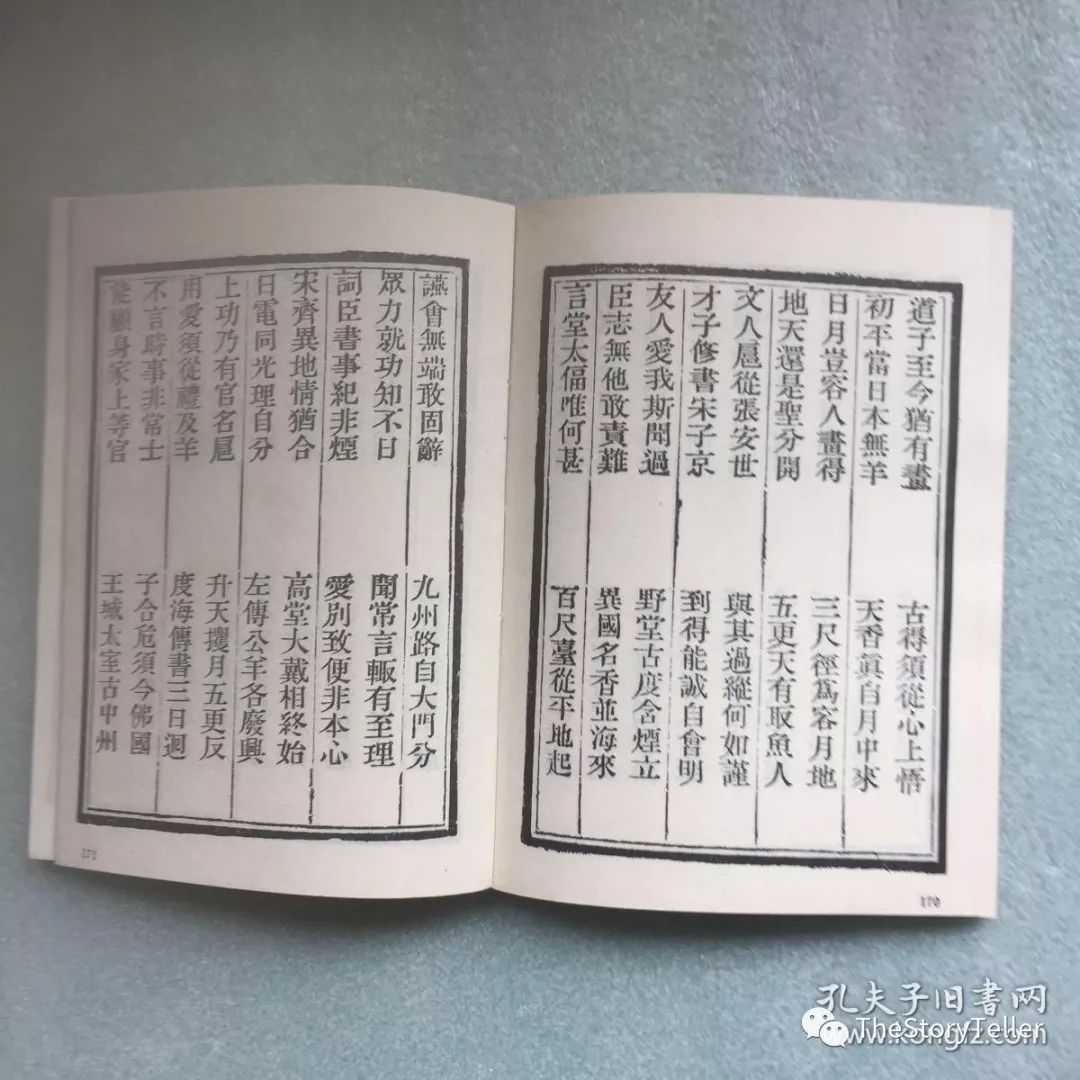 道子至今猶有畫
古得須從心上悟
初平當日本無羊
天香眞自月中來
日月豈容人畫得
三尺徑爲客月地
地天還是聖分開
五更天有取魚人
文人扈從張安世
與其過縱何如謹
才子修書宋子京
到得能誠自會明
友人愛我斯聞過
野堂古度含煙立
臣志無他敢責難
異國名香並海來
言堂太偪唯何甚
百尺臺從平地起
170
讌會無端敢固辭
九州路自大門分
眾力就功知不日
聞常言輙有至理
詞臣書事紀非煙
愛別致便非本心
宋齊異地情猶合
高堂大戴相終始
日電同光理自分
左傳公羊各廢興
上功乃有官名扈
升天攫月五更反
用愛須從禮及羊
度海傳書三日迴
不言時事非常士
子合危須今佛國
能顧身家上等官
王城太室古中州
171
孔夫子旧书网
TheStoryTeller